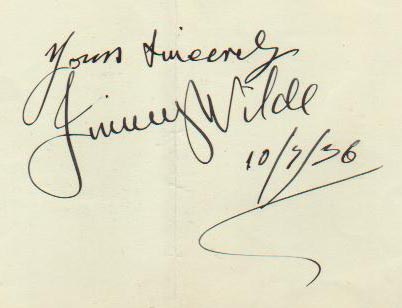 Yours Sincerely
Jimmy Wilde
10/7/36